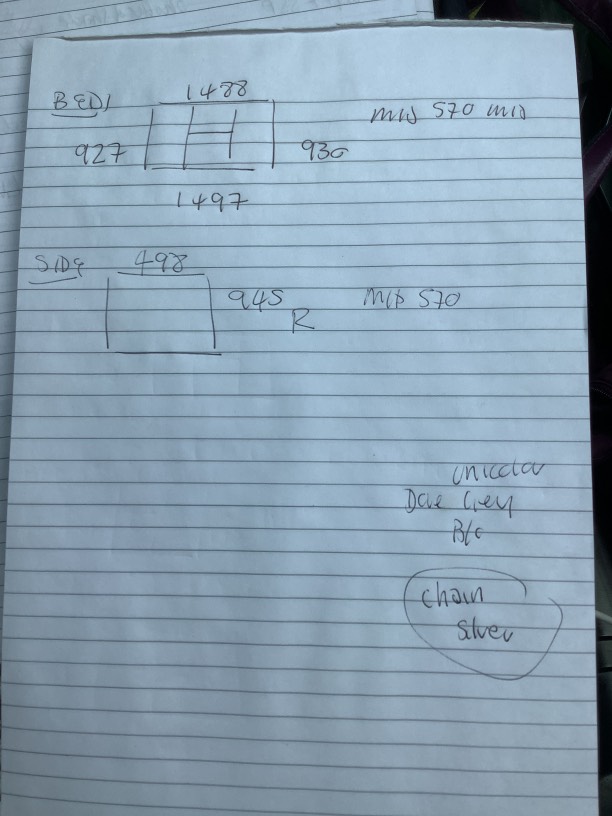 BED1 1488
927 930 MID 570 MID
1497
SIDE 498
945 R MID 570
unicolor
Dove Grey
B/o
Chain
Silver